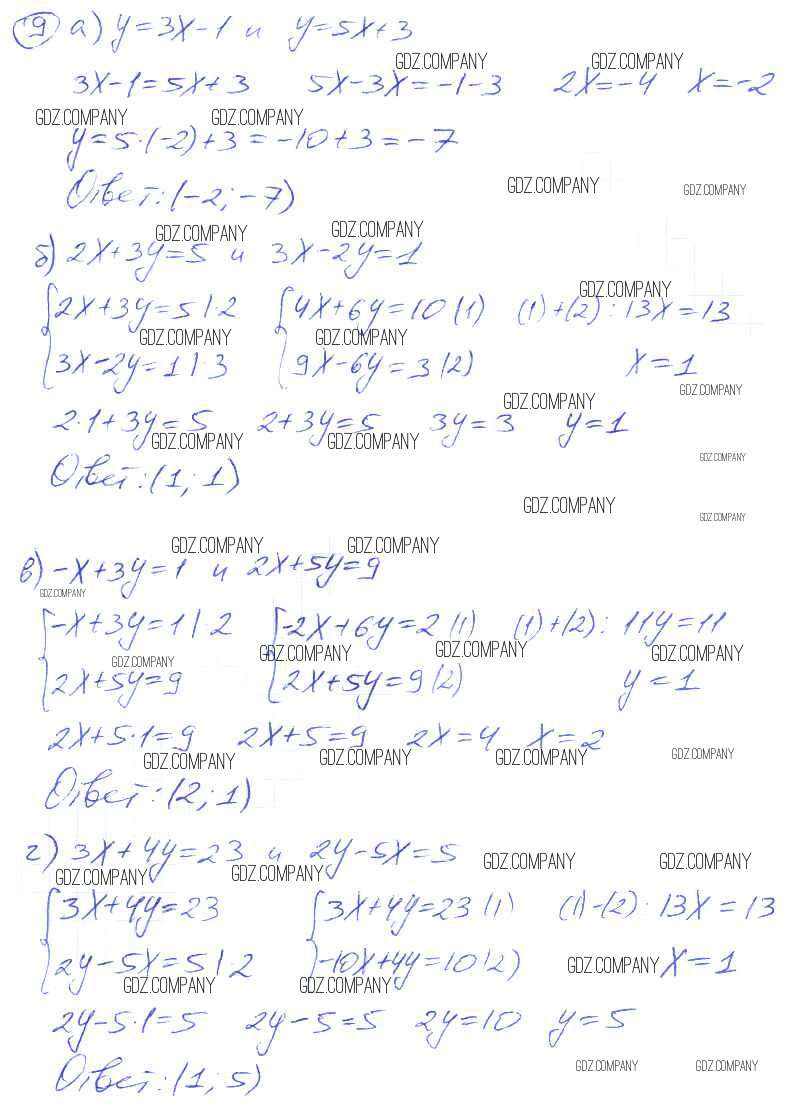 9 а) y=3x-1 и y=5x+3
GDZ.COMPANY GDZ.COMPANY
3x-1=5x+3 5x-3x=-1-3 2x=-4 x=-2
GDZ.COMPANY GDZ.COMPANY
y=5·(-2)+3=-10+3=-7
Ответ:(-2;-7) GDZ.COMPANY GDZ.COMPANY
GDZ.COMPANY GDZ.COMPANY
б) 2x+3y=5 и 3x-2y=1
GDZ.COMPANY
{2x+3y=5 |·2 {4x+6y=10 (1) (1)+(2): 13x=13
GDZ.COMPANY GDZ.COMPANY
3x-2y=1 |·3 9x-6y=3 (2) x=1
GDZ.COMPANY GDZ.COMPANY
2·1+3y=5 2+3y=5 3y=3 y=1
GDZ.COMPANY GDZ.COMPANY GDZ.COMPANY
Ответ:(1;1)
GDZ.COMPANY GDZ.COMPANY
GDZ.COMPANY GDZ.COMPANY
в) -x+3y=1 и 2x+5y=9
GDZ.COMPANY
{-x+3y=1 |·2 {-2x+6y=2 (1) (1)+(2): 11y=11
GDZ.COMPANY GDZ.COMPANY GDZ.COMPANY GDZ.COMPANY
2x+5y=9 2x+5y=9 (2) y=1
2x+5·1=9 2x+5=9 2x=4 x=2
GDZ.COMPANY GDZ.COMPANY GDZ.COMPANY GDZ.COMPANY
Ответ:(2;1)
г) 3x+4y=23 и 2y-5x=5 GDZ.COMPANY GDZ.COMPANY
GDZ.COMPANY GDZ.COMPANY
{3x+4y=23 {3x+4y=23 (1) (1)-(2): 13x=13
2y-5x=5 |·2 -10x+4y=10 (2) GDZ.COMPANY x=1
GDZ.COMPANY GDZ.COMPANY
2y-5·1=5 2y-5=5 2y=10 y=5
Ответ:(1;5) GDZ.COMPANY GDZ.COMPANY